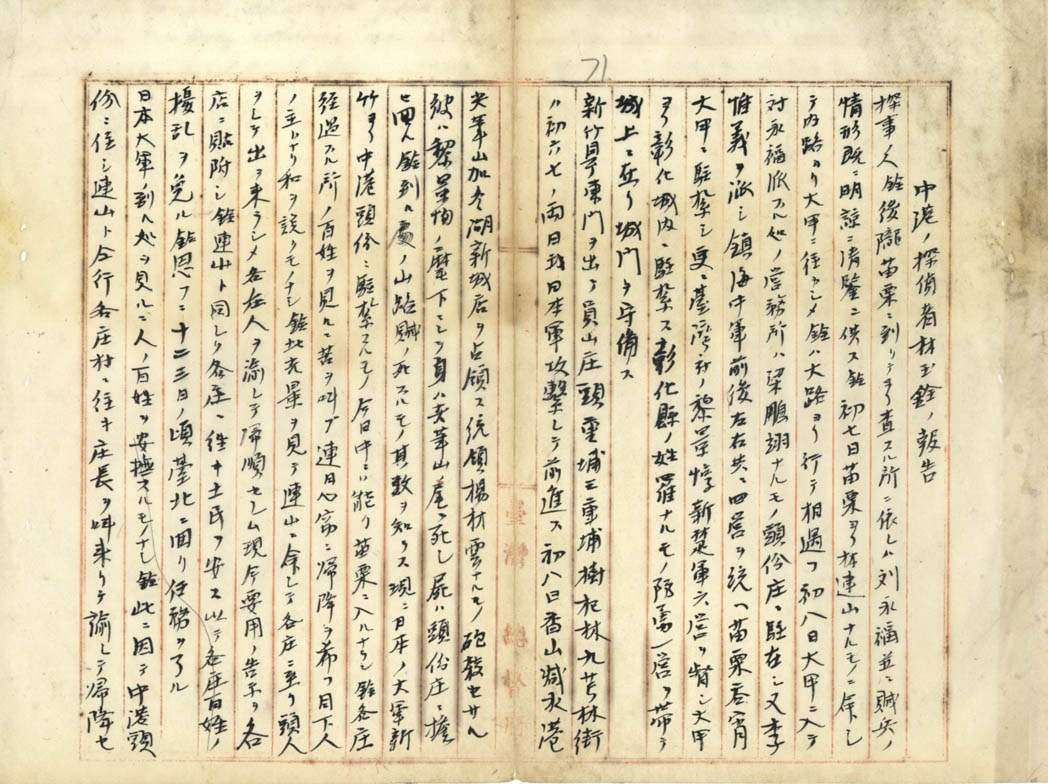 71
中港ノ探偵者林玉銓ノ報告
探事人銓後壠苗栗ニ到リテヨリ査スル所ニ依レハ刘永福並ニ賊兵ノ
情形既ニ明諒ニ清鑒ニ供ス銓初七日苗栗ヨリ林連山ナルモノニ命シ
テ内路ヨリ大甲ニ往カシメ銓ハ大路ヨリ行テ相遇フ初八日大甲ニ入テ
討永福派スル如ノ営務所ハ梁鵬翊ナルモノ頭份庄ニ駐在シ又李
惟義ヲ派シ鎮海中軍前後左右共ニ四営ヲ統ヘ苗栗吞霄
大甲ニ駐紮シ更ニ臺湾府ノ黎景惇新楚軍六営ヲ督シ大甲
ヨリ彰化城内ニ駐紮ス彰化縣ノ姓羅ナルモノ防勇一営ヲ帯テ
城上ニ在リ城門ヲ守備ス
新竹縣東門ヲ出テ員山庄頭重埔二重埔樹杞林九芎林街
ハ初六七ノ両日我日本軍攻撃シテ前進ス初八日香山鹹水港
尖筆山加冬湖新城店ヲ占領ス統領楊材雲ナルモノ砲殺セサル
彼ハ黎景惇ノ麾下ニシテ身ハ尖筆山尾ニ死シ屍ハ頭份庄ニ擔
ヒ回ル銓到ル處ノ山路賊ノ死スルモノ其数ヲ知ラス現ニ日本ノ大軍新
竹ヨリ中港頭份ニ駐紮スルモノ今日中ニハ能ク苗栗ニ入ルナラン銓各庄
経過スル所ノ百姓ヲ見ルニ苦ヲ叫ブ連日心窃ニ帰降ヲ希フ目下人
ノ主トナリ和ヲ説クモノナシ銓此光景ヲ見テ連山ニ命シテ各庄ニ至リ頭人
ヲシテ出テ来ラシメ各在人ヲ諭シテ帰順セシム現今要用ノ告示ヲ各
店ニ貼附シ銓連山ト同シク各庄ニ往キ土民ヲ安ス以テ各庄百姓ノ
擾乱ヲ免ル銓思フニ十二三日ノ頃臺北ニ回リ任務ヲ了ル
日本大軍ノ到ル処ヲ見ルニ人ノ百姓ヲ安撫スルモノナシ銓此ニ因テ中港頭
份ニ住シ連山ト仝行各庄村ニ往キ庄長ヲ叫来リテ諭シテ帰降セ
臺灣總督府